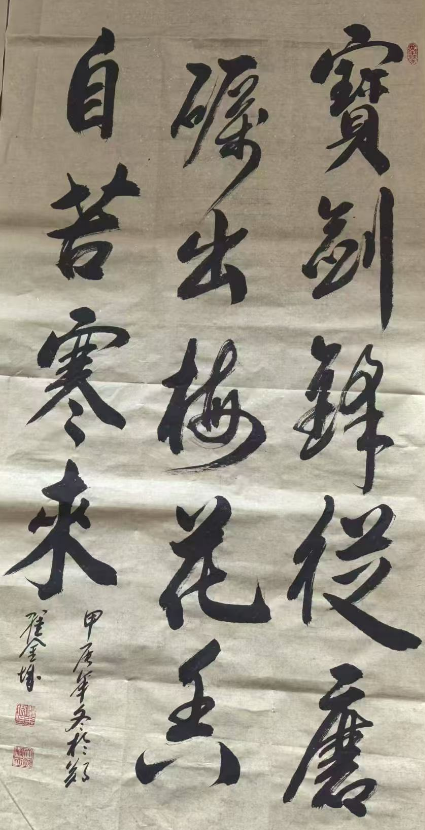 寶劍鋒從磨
礪出梅花香
自苦寒來
甲辰年冬於鄭